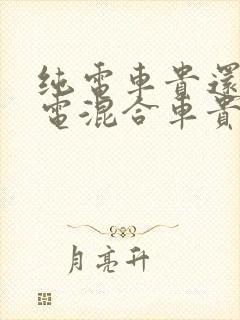 纯電車貴還
電混合車貴
月亮升